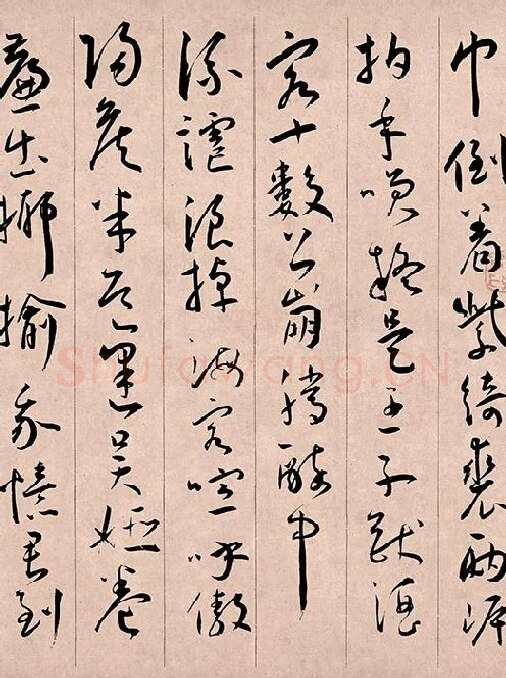 巾倒着紫綺裘兩岸
拍手笑疑是王子猷酒
客十數公崩騰醉中
流謔浪掉海客喧呼傲
陽侯半道逢吳姬卷
簾出揶揄我憶君到
Shufawang.CN